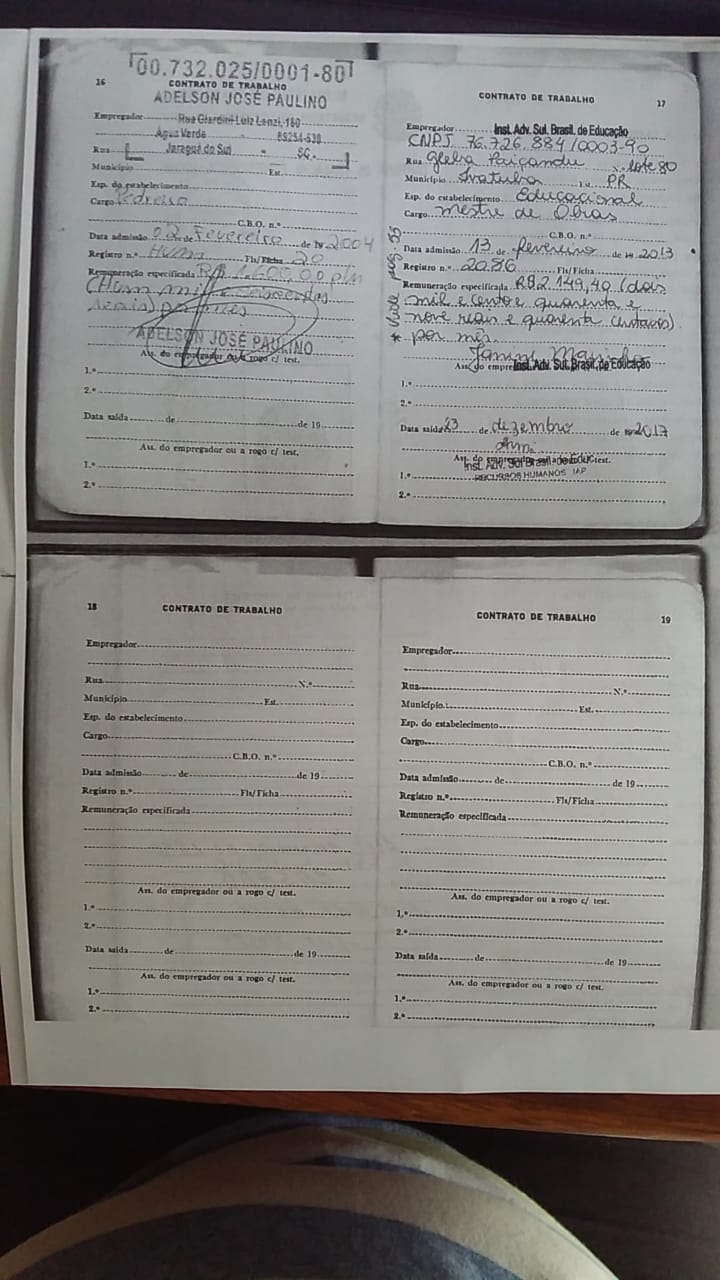 00.732.025/0001-80
16
CONTRATO DE TRABALHO
ADELSON JOSÉ PAULINO
Empregador Rua Giardini Luiz Lenzi, 180
Água Verde 89254-530
Rua Jaraguá do Sul - SC.
Município Est.
Esp. do estabelecimento
Cargo Pedreiro
C.B.O. n.º
Data admissão 02 de Fevereiro de 19 2004
Registro n.º Fls/Ficha 20
Remuneração especificada R$ 1.600,00 p/m
(Hum mil e seiscentos
reais) por mês
ADELSON JOSÉ PAULINO
Ass. do empregador ou a rogo c/ test.
1.º
2.º
Data saída de de 19
Ass. do empregador ou a rogo c/ test.
1.º
2.º
CONTRATO DE TRABALHO 17
Empregador Inst. Adv. Sul. Brasil. de Educação
CNPJ 76.726.884/0003-90
Rua Gleba Paiçandu N.º lote 80
Município Ivatuba Est. PR
Esp. do estabelecimento Educacional
Cargo Mestre de Obras
C.B.O. n.º
Data admissão 13 de fevereiro de 19 2013
Registro n.º 2086 Fls/Ficha
Remuneração especificada R$ 2.149,40 (dois
mil e cento e quarenta e
nove reais e quarenta centavos)
* por mês.
Ass. do empre Inst. Adv. Sul. Brasil. de Educação
1.º
2.º
Data saída 23 de dezembro de 19 2017
Ass. do empregador
Inst. Adv. Sul Brasil. de Educ test.
1.º RECURSOS HUMANOS IAP
2.º
18 CONTRATO DE TRABALHO
Empregador
Rua N.º
Município Est.
Esp. do estabelecimento
Cargo
C.B.O. n.º
Data admissão de de 19
Registro n.º Fls/Ficha
Remuneração especificada
Ass. do empregador ou a rogo c/ test.
1.º
2.º
Data saída de de 19
Ass. do empregador ou a rogo c/ test.
1.º
2.º
CONTRATO DE TRABALHO 19
Empregador
Rua N.º
Município Est.
Esp. do estabelecimento
Cargo
C.B.O. n.º
Data admissão de de 19
Registro n.º Fls/Ficha
Remuneração especificada
Ass. do empregador ou a rogo c/ test.
1.º
2.º
Data saída de de 19
Ass. do empregador ou a rogo c/ test.
1.º
2.º